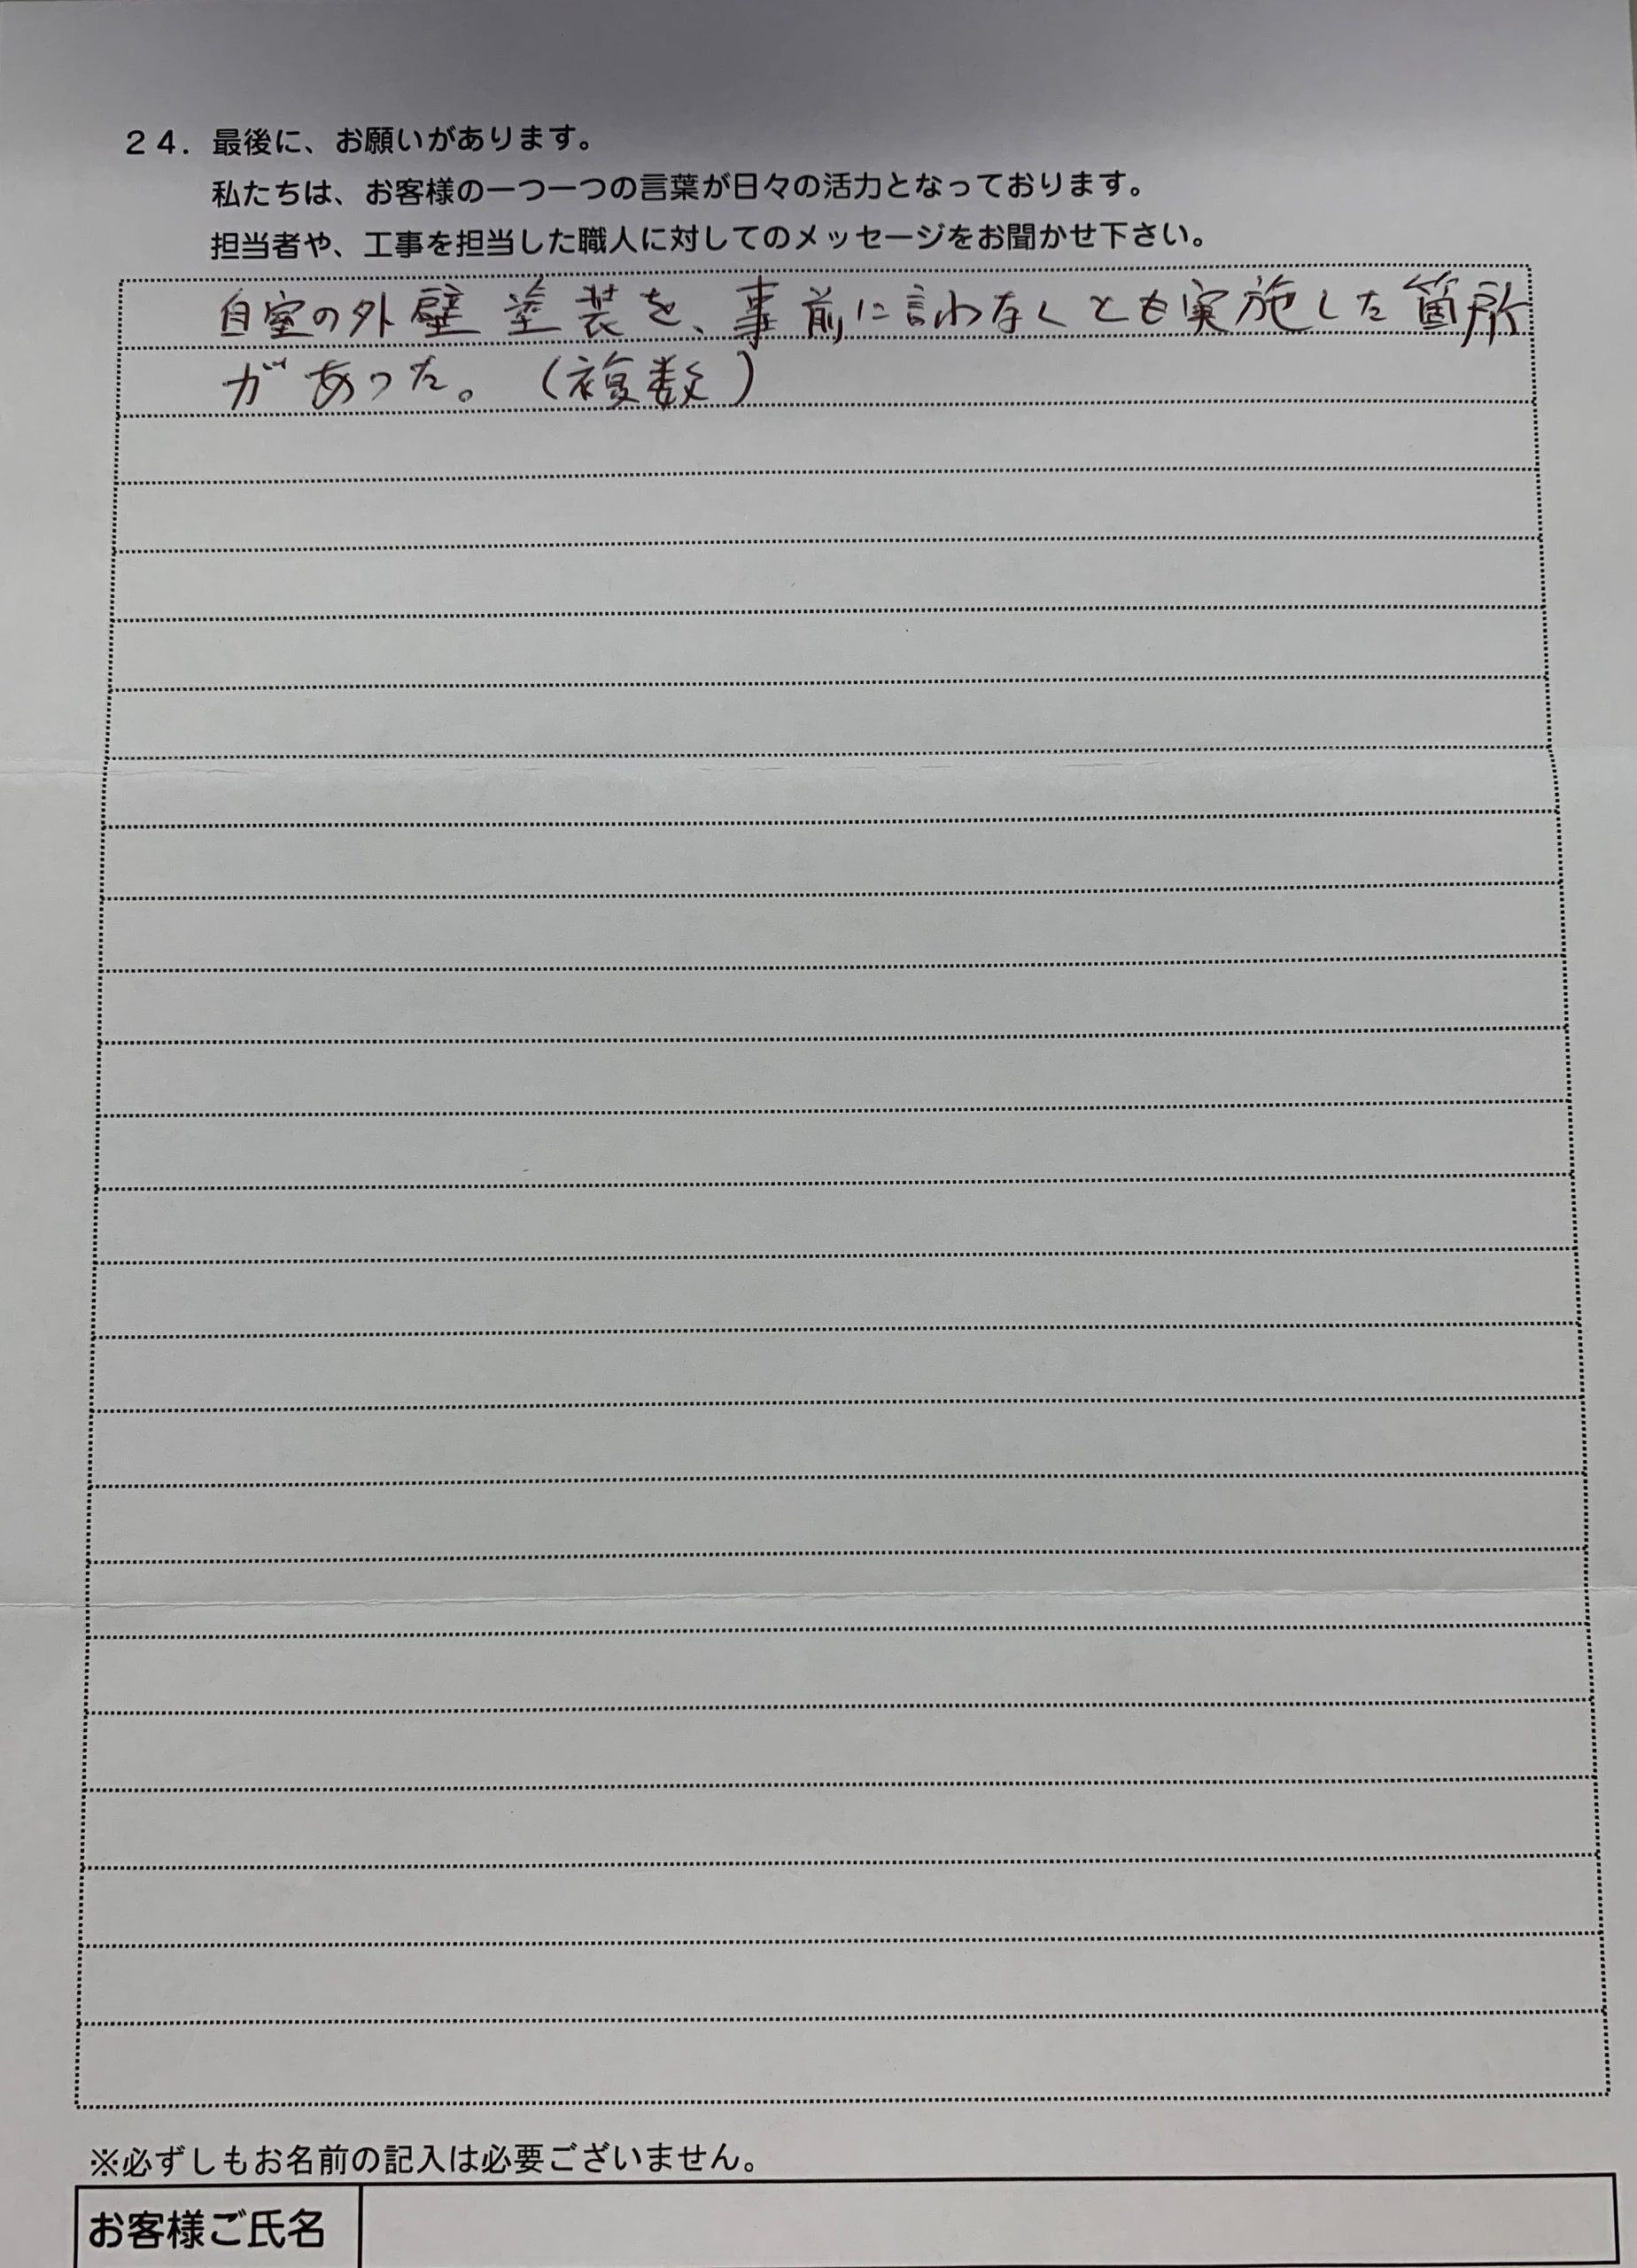 ２４．最後に、お願いがあります。
私たちは、お客様の一つ一つの言葉が日々の活力となっております。
担当者や、工事を担当した職人に対してのメッセージをお聞かせ下さい。
自室の外壁塗装を、事前に言わなくとも実施した箇所
があった。（複数）
※必ずしもお名前の記入は必要ございません。
お客様ご氏名